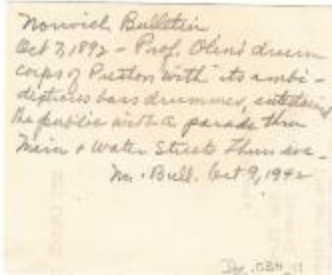 Norwich Bulletin
Oct 7, 1892 - Prof. Olin's drum
corps of Preston with its ambi-
dextrous bass drummer, entertained
the public with a parade thru
Main & Water Streets Thurs eve -
Nor. Bull. Oct 9, 1942